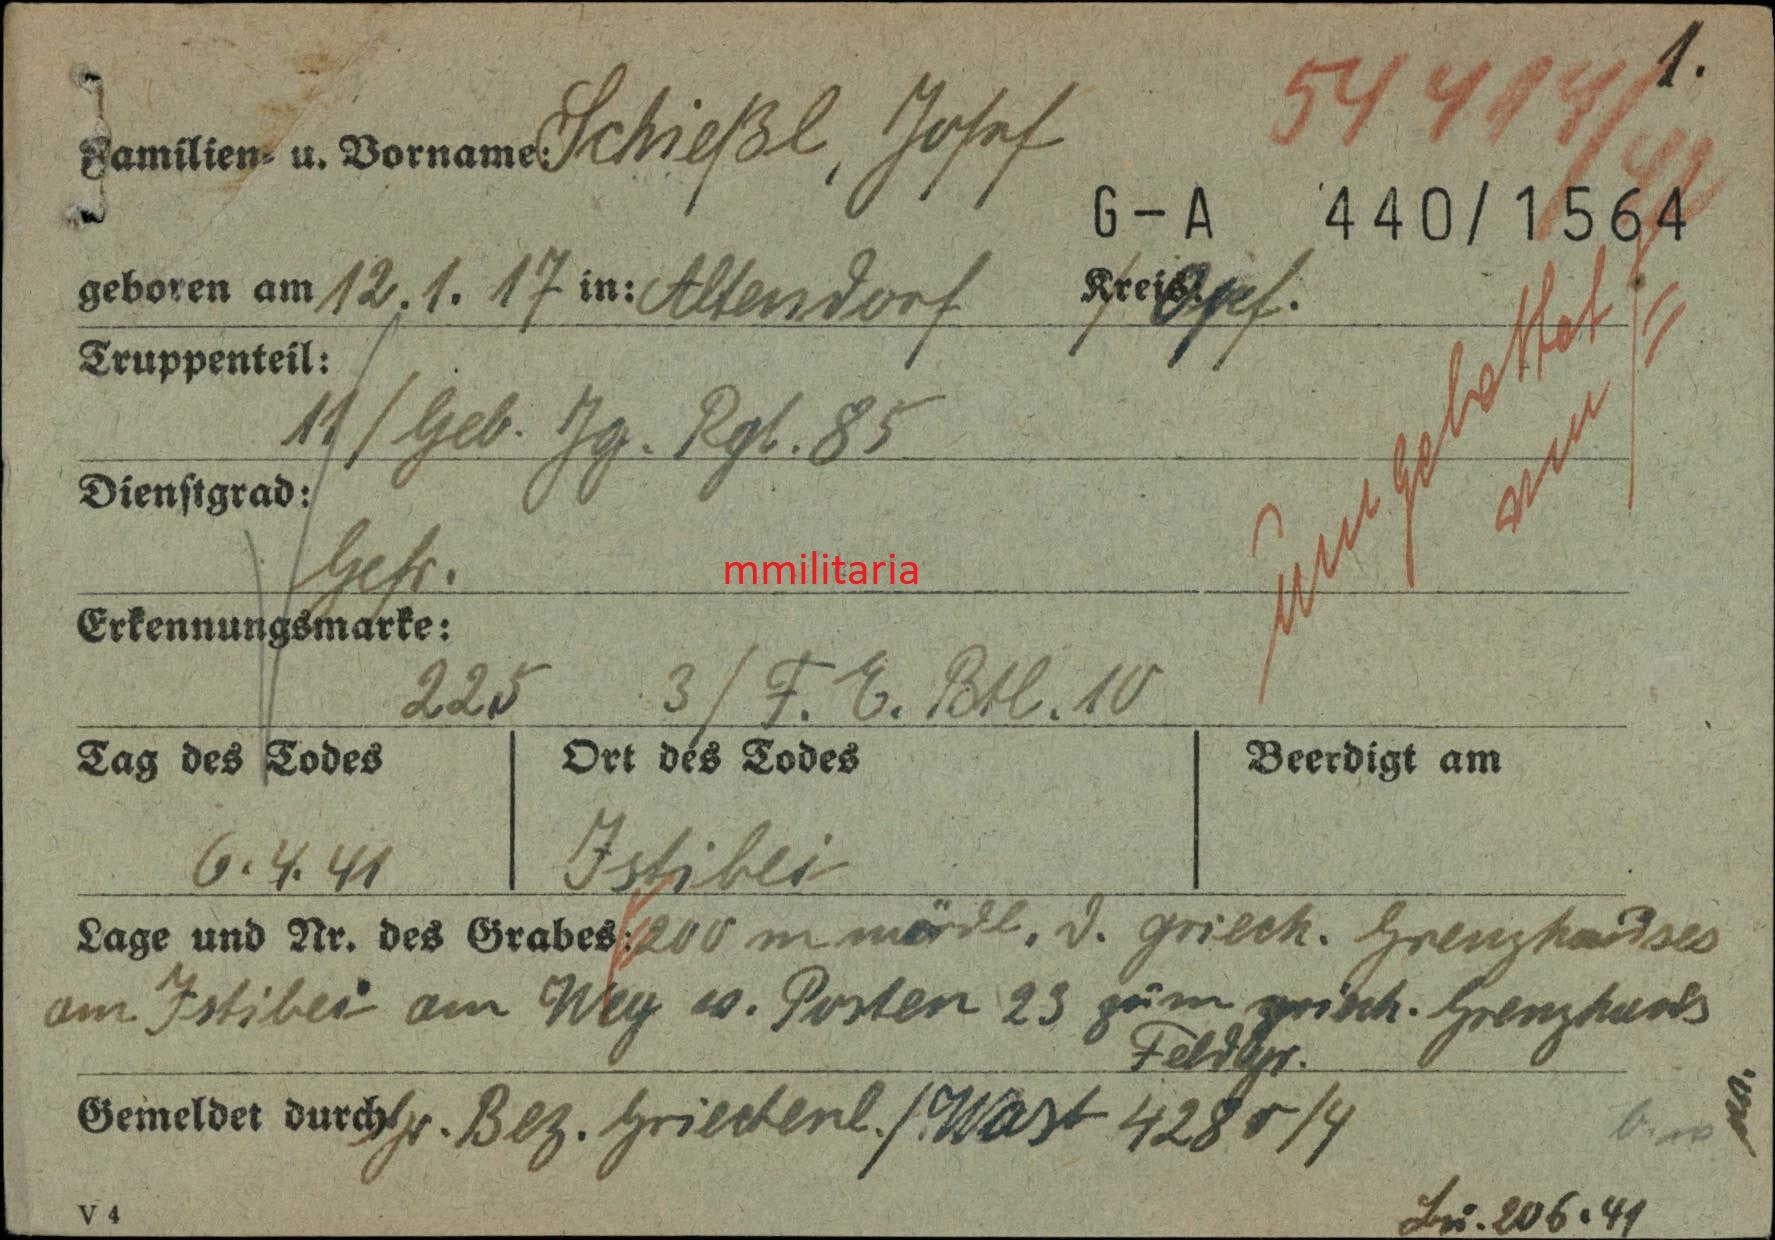 1.
54484/42
Familien- u. Vorname: Schießl, Josef
G-A 440/1564
geboren am 12.1.17 in: Altendorf Kreis: / Opf.
Truppenteil:
11/Geb. Jg. Rgt. 85
Dienstgrad:
Gefr.
mmilitaria
Erkennungsmarke:
225 3/F. E. Btl. 10
Tag des Todes Ort des Todes Beerdigt am
6.4.41 Istibei
Lage und Nr. des Grabes: 200 m nördl. d. griech. Grenzhauses
am Istibei am Weg v. Posten 23 zum griech. Grenzhaus
umgebettet
Feldgr.
Gemeldet durch Gr. Bez. Griechenl. / Wast 4280/4
V 4